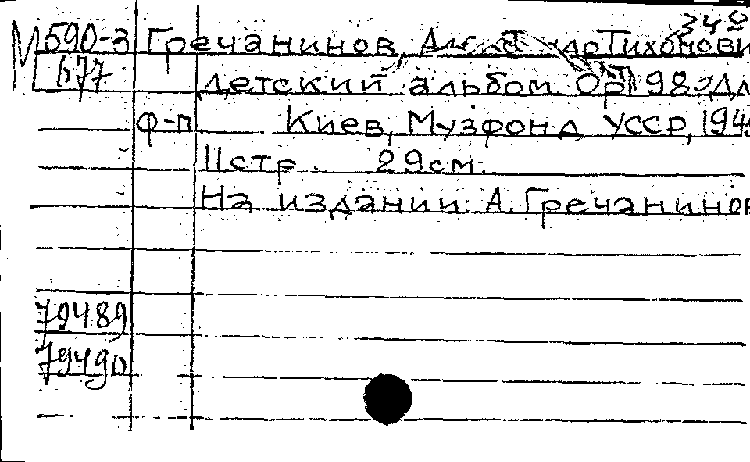 349
М590-3 Гречанинов, Тихонови
677 Детский альбом Ор 98. Дл
ф-п Киев, Музфонд УССР, 194
11стр. 29см.
На издании: А. Гречанинов
79489
79490